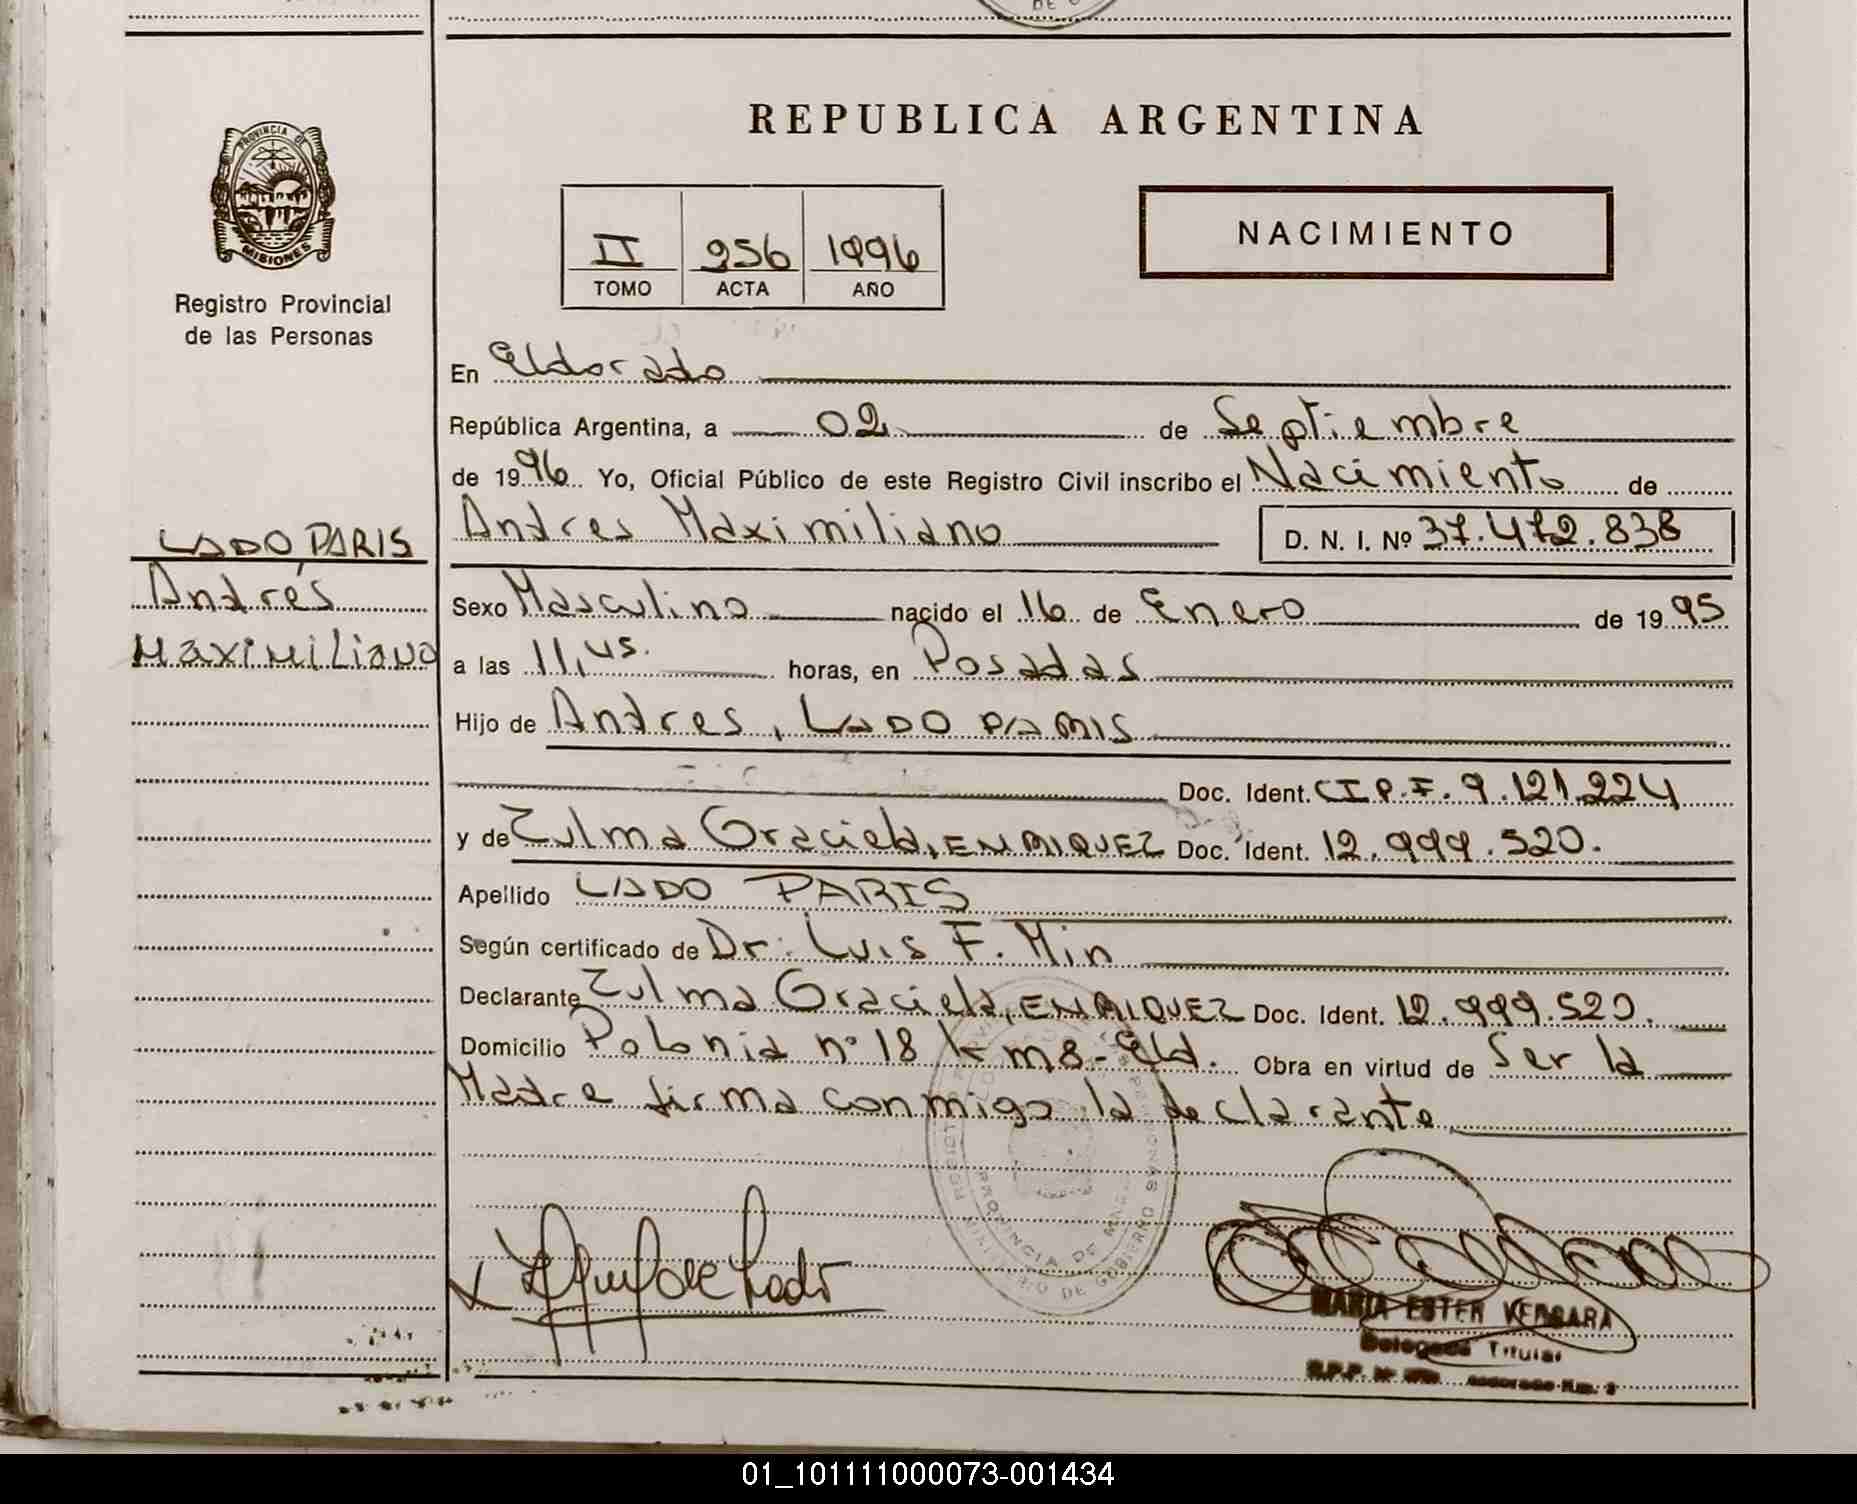 REPUBLICA ARGENTINA
PROVINCIA DE
MISIONES
Registro Provincial
de las Personas
II 956 1996
TOMO ACTA AÑO
NACIMIENTO
En Eldorado
República Argentina, a 02 de Septiembre
de 1996 Yo, Oficial Público de este Registro Civil inscribo el Nacimiento de
Andres Maximiliano D. N. I. Nº 37.472.838
LADO PARIS
Andrés
Maximiliano
Sexo Masculino nacido el 16 de Enero de 1995
a las 11,45. horas, en Posadas
Hijo de Andres, LADO PARIS
Doc. Ident. C I P. F. 9.121.224
y de Zulma Graciela, ENRIQUEZ Doc. Ident. 12.999.520.
Apellido LADO PARIS
Según certificado de Dr: Luis F. Min
Declarante Zulma Graciela, ENRIQUEZ Doc. Ident. 12.999.520.
Domicilio Polonia nº 18 km 8 - Eld. Obra en virtud de Ser la
Madre firma conmigo la declarante
PROVINCIA DE
MINISTERIO DE GOBIERNO
MARIA ESTER VERGARA
Delegada Titular
01_101111000073-001434